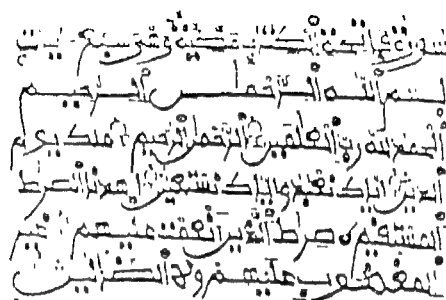 سورة فاتحة الكتاب سبع ايت
بسم الله الرحمن الرحيم
الحمد لله رب العلمين الرحمن الرحيم ملك يوم
الدين اياك نعبد واياك نستعين اهدنا الصرط
المستقيم صرط الذين انعمت عليهم غير
المغضوب عليهم ولا الضالين